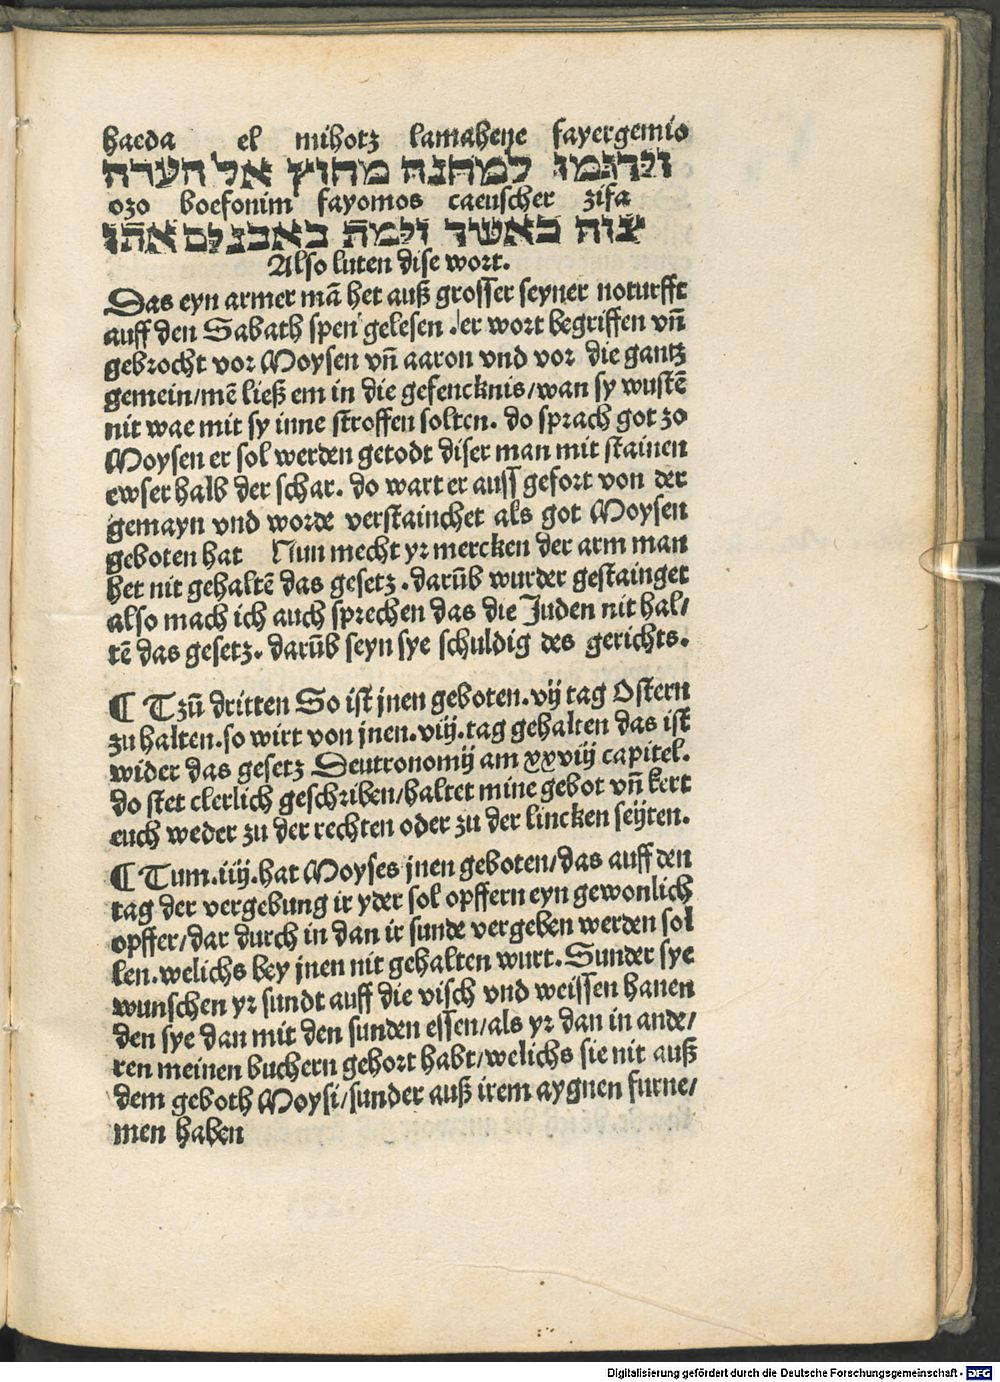 haeda el mihotz lamahene fayergemio
ולרגמו למחנה מחוץ אל העדה
ozo boefonim fayomos caeuscher zifa
צוה כאשר וימת באבנים אתו
Also luten dise wort.
Das eyn armer mā het auß grosser seyner noturfft
auff den Sabath spen gelesen .er wort begriffen vn̄
gebrocht vor Moysen vn̄ aaron vnd vor die gantz
gemein/mē ließ em in die gefencknis/wan sy wustē
nit wae mit sy inne stroffen solten. do sprach got zo
Moysen er sol werden getodt diser man mit stainen
ewser halb der schar. do wart er auss gefort von der
gemayn vnd worde verstainchet als got Moysen
geboten hat Nun mecht yr mercken der arm man
het nit gehaltē das gesetz. darūb wurder gestainget
also mach ich auch sprechen das die Juden nit hal/
tē das gesetz. darūb seyn sye schuldig des gerichts.
¶ Tzū dritten So ist jnen geboten. vij tag Ostern
zu halten. so wirt von jnen. viij. tag gehalten das ist
wider das gesetz Deutronomij am xxviij capitel.
do stet clerlich geschriben/haltet mine gebot vn̄ kert
euch weder zu der rechten oder zu der lincken seyten.
¶ Tum. iiij. hat Moyses jnen geboten/das auff den
tag der vergebung ir yder sol opffern eyn gewonlich
opffer/dar durch in dan ir sunde vergeben werden sol
len. welichs bey jnen nit gehalten wurt. Sunder sye
wunschen yr sundt auff die visch vnd weissen hanen
den sye dan mit den sunden essen/als yr dan in ande/
ren meinen buchern gehort habt/welichs sie nit auß
dem geboth Moysi/sunder auß irem aygnen furne/
men haben
Digitalisierung gefördert durch die Deutsche Forschungsgemeinschaft - DFG